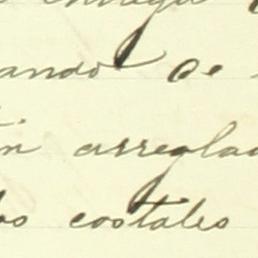 entrega
ando de
n arreglad
os costales